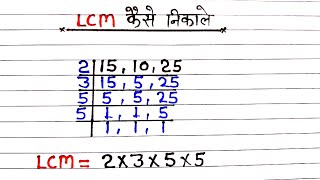 LCM कैसे निकाले
2 | 15, 10, 25
3 | 15, 5, 25
5 | 5, 5, 25
5 | 1, 1, 5
1, 1, 1
LCM = 2×3×5×5